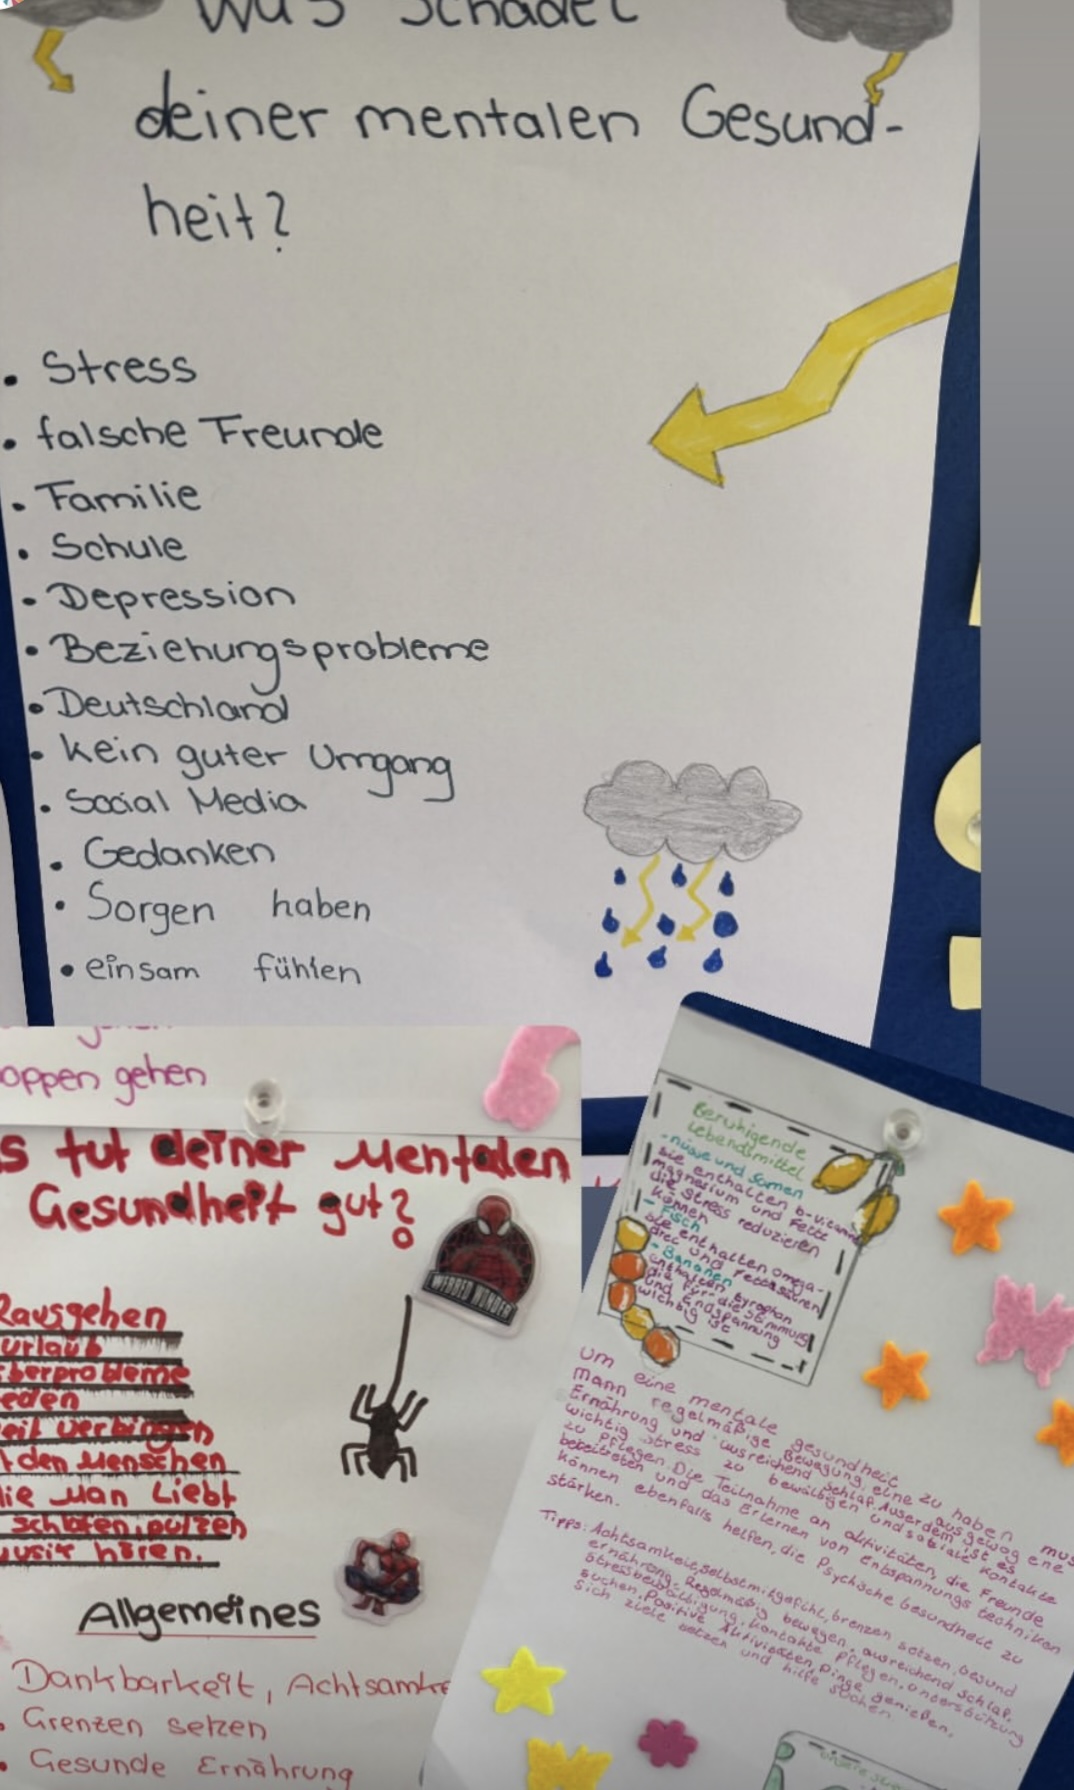 Was schadet
deiner mentalen Gesund-
heit?
• Stress
• falsche Freunde
• Familie
• Schule
• Depression
• Beziehungsprobleme
• Deutschland
• kein guter Umgang
• Social Media
• Gedanken
• Sorgen haben
• einsam fühlen
oppen gehen
s tut deiner Mentalen
Gesundheit gut?
WEBBED WONDER
Rausgehen
urlaub
berprobleme
eden
eit verbingen
t den Menschen
die man Liebt
schlafen, putzen
usik hören.
Allgemeines
Dankbarkeit, Achtsamke
• Grenzen setzen
• Gesunde Ernährung
Beruhigende
Lebensmittel
- nüsse und samen
sie enthalten b-vitamine
magnesium und Fette
die stress reduzieren
können
- Fisch
sie enthalten omega-
drei und fettsäuren
- Bananen
enthalten tyrophan
die für die stimmung
und Endspannung
wichtig ist
um eine mentale gesundheit zu haben mus
mann regelmäßige Bewegung, eine ausgewogene
Ernährung und ausreichend schlaf. Auserdem ist es
wichtig stress zu bewältigen und soziale kontakte
zu pflegen. Die Teilnahme an aktivitäten, die Freunde
bereiten und das Erlernen von entspannungs techniken
können ebenfalls helfen, die Psychische gesundheit zu
stärken.
Tipps: Achtsamkeit, selbstmitgefühl, brenzen setzen, gesund
ernährung, Regelmäßig bewegen, ausreichend schlaf,
stressbewältigung, kontakte pflegen, unterstützung
suchen, Positive Aktivitäten, Dinge genießen,
sich ziele setzen und hilfe suchen